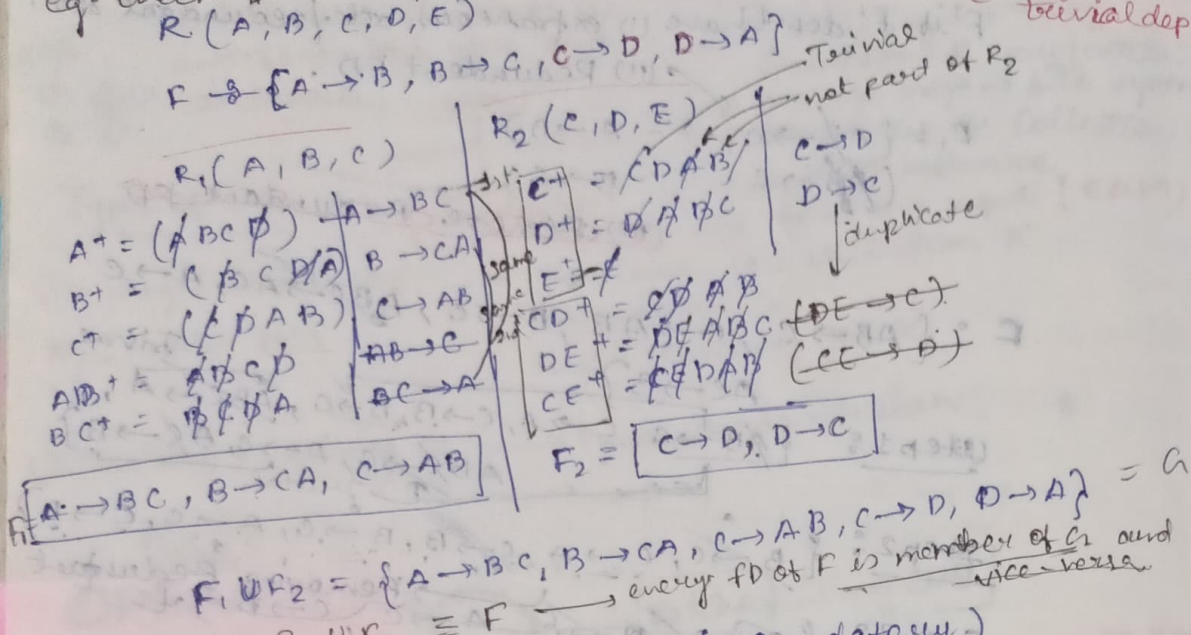 trivial dep
R (A, B, C, D, E)
F → {A → B, B → C, C → D, D → A}
Trivial
not part of R2
R1 (A, B, C)
A+ = (A B C D)
B+ = C B C D A)
C+ = (C D A B)
AB+ = A B C D
BC+ = B C D A
A → BC
B → CA
C → AB
AB → C
BC → A
same
R2 (C, D, E)
C+ = C D A B
D+ = D A B C
E+ = E
CD+ = C D A B
DE+ = D E A B C (DE → C)
CE+ = C E D A B (CE → D)
C → D
D → C
duplicate
F1 A → BC, B → CA, C → AB
F2 = C → D, D → C
F1 U F2 = {A → BC, B → CA, C → AB, C → D, D → A} = G
≡ F → every FD of F is member of G and
vice-versa